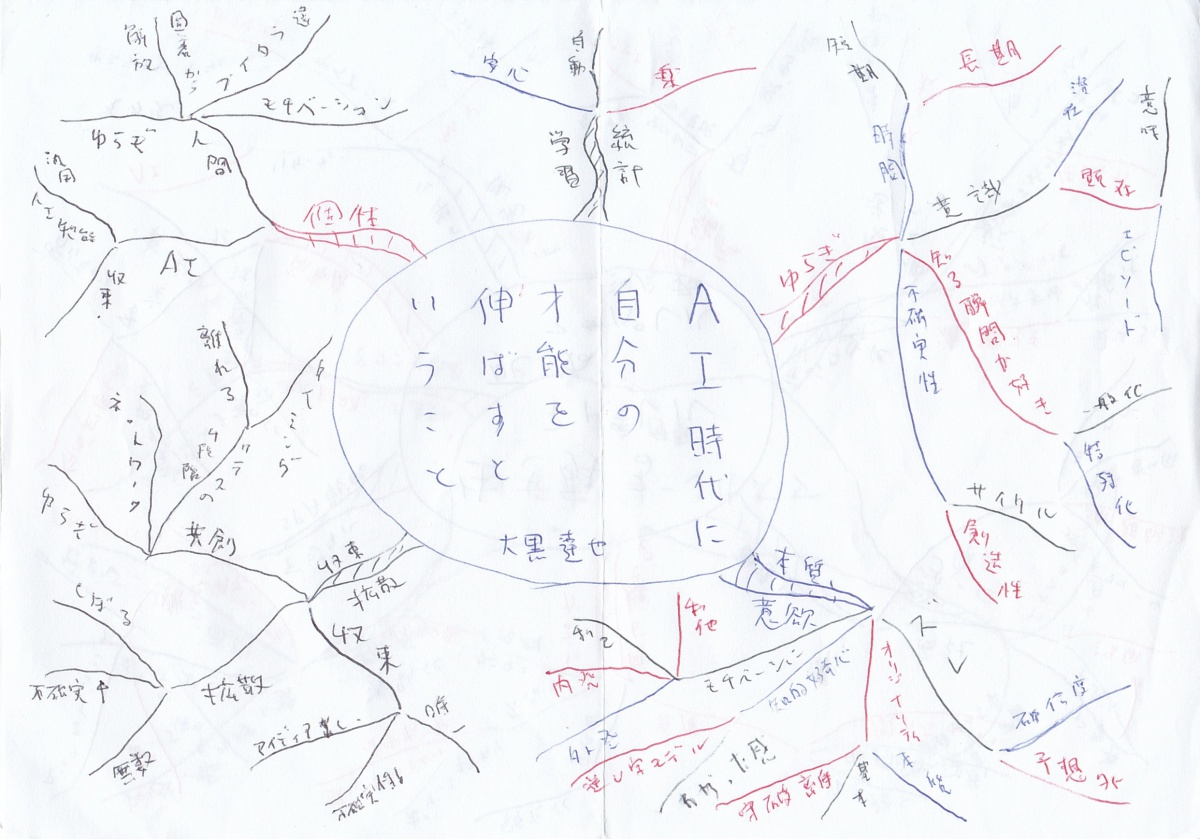 AI時代に
自分の
才能を
伸ばすと
いうこと
大黒達也
統計
学習
自動
安心
楽
ゆらぎ
瞬間
短期
長期
意識
潜在
顕在
意味
エピソード
知る瞬間が好き
一般化
特殊化
不確実性
サイクル
創造性
本質
意欲
確信度
予想外
オリジナリティ
本能
基本
守破離
知的好奇心
逆U字モデル
わかった感
モチベーション
利他
利己
内発
外発
収束
拡散
収束
アイディア
不確実性
拡散
しぼる
不確実
無数
共創
ゆらぎ
ネットワーク
4段階
離れる
タイミング
個性
人間
ゆらぎ
解放
モチベーション
AI
汎用
人工知能
収束